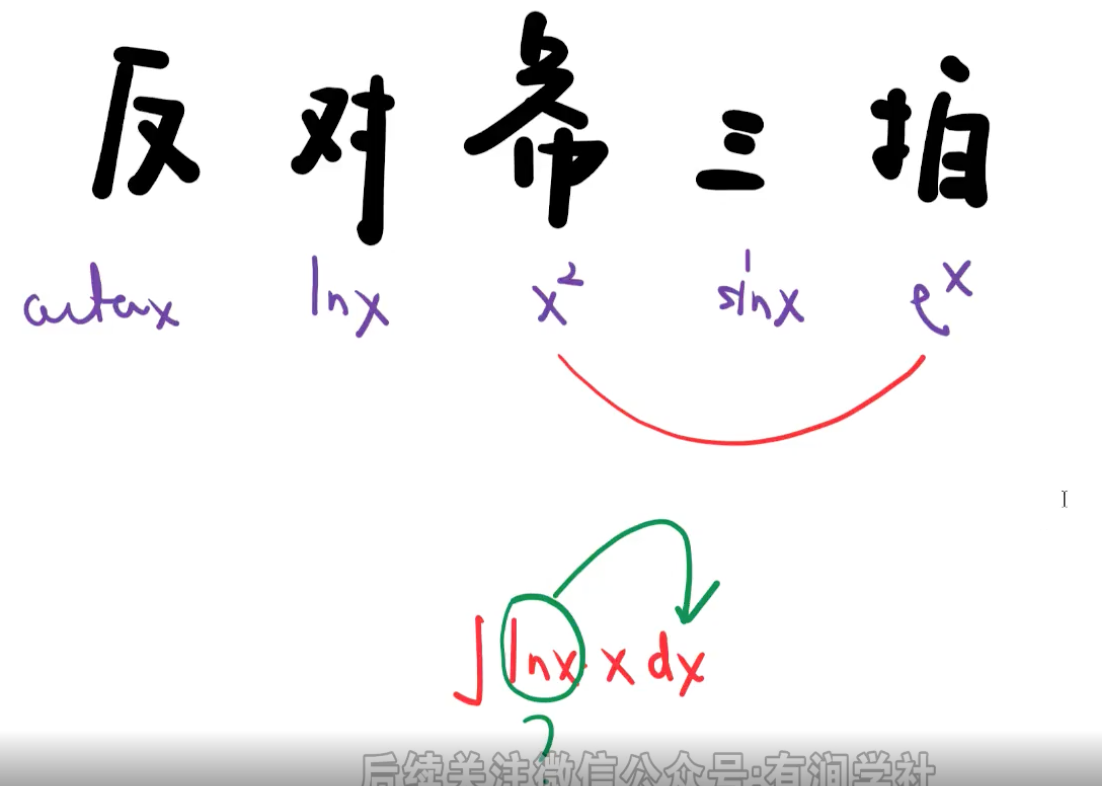 反 对 幂 三 指
arctanx lnx x² sinx eˣ
∫ lnx · x dx
?
后续关注微信公众号:有涧学社